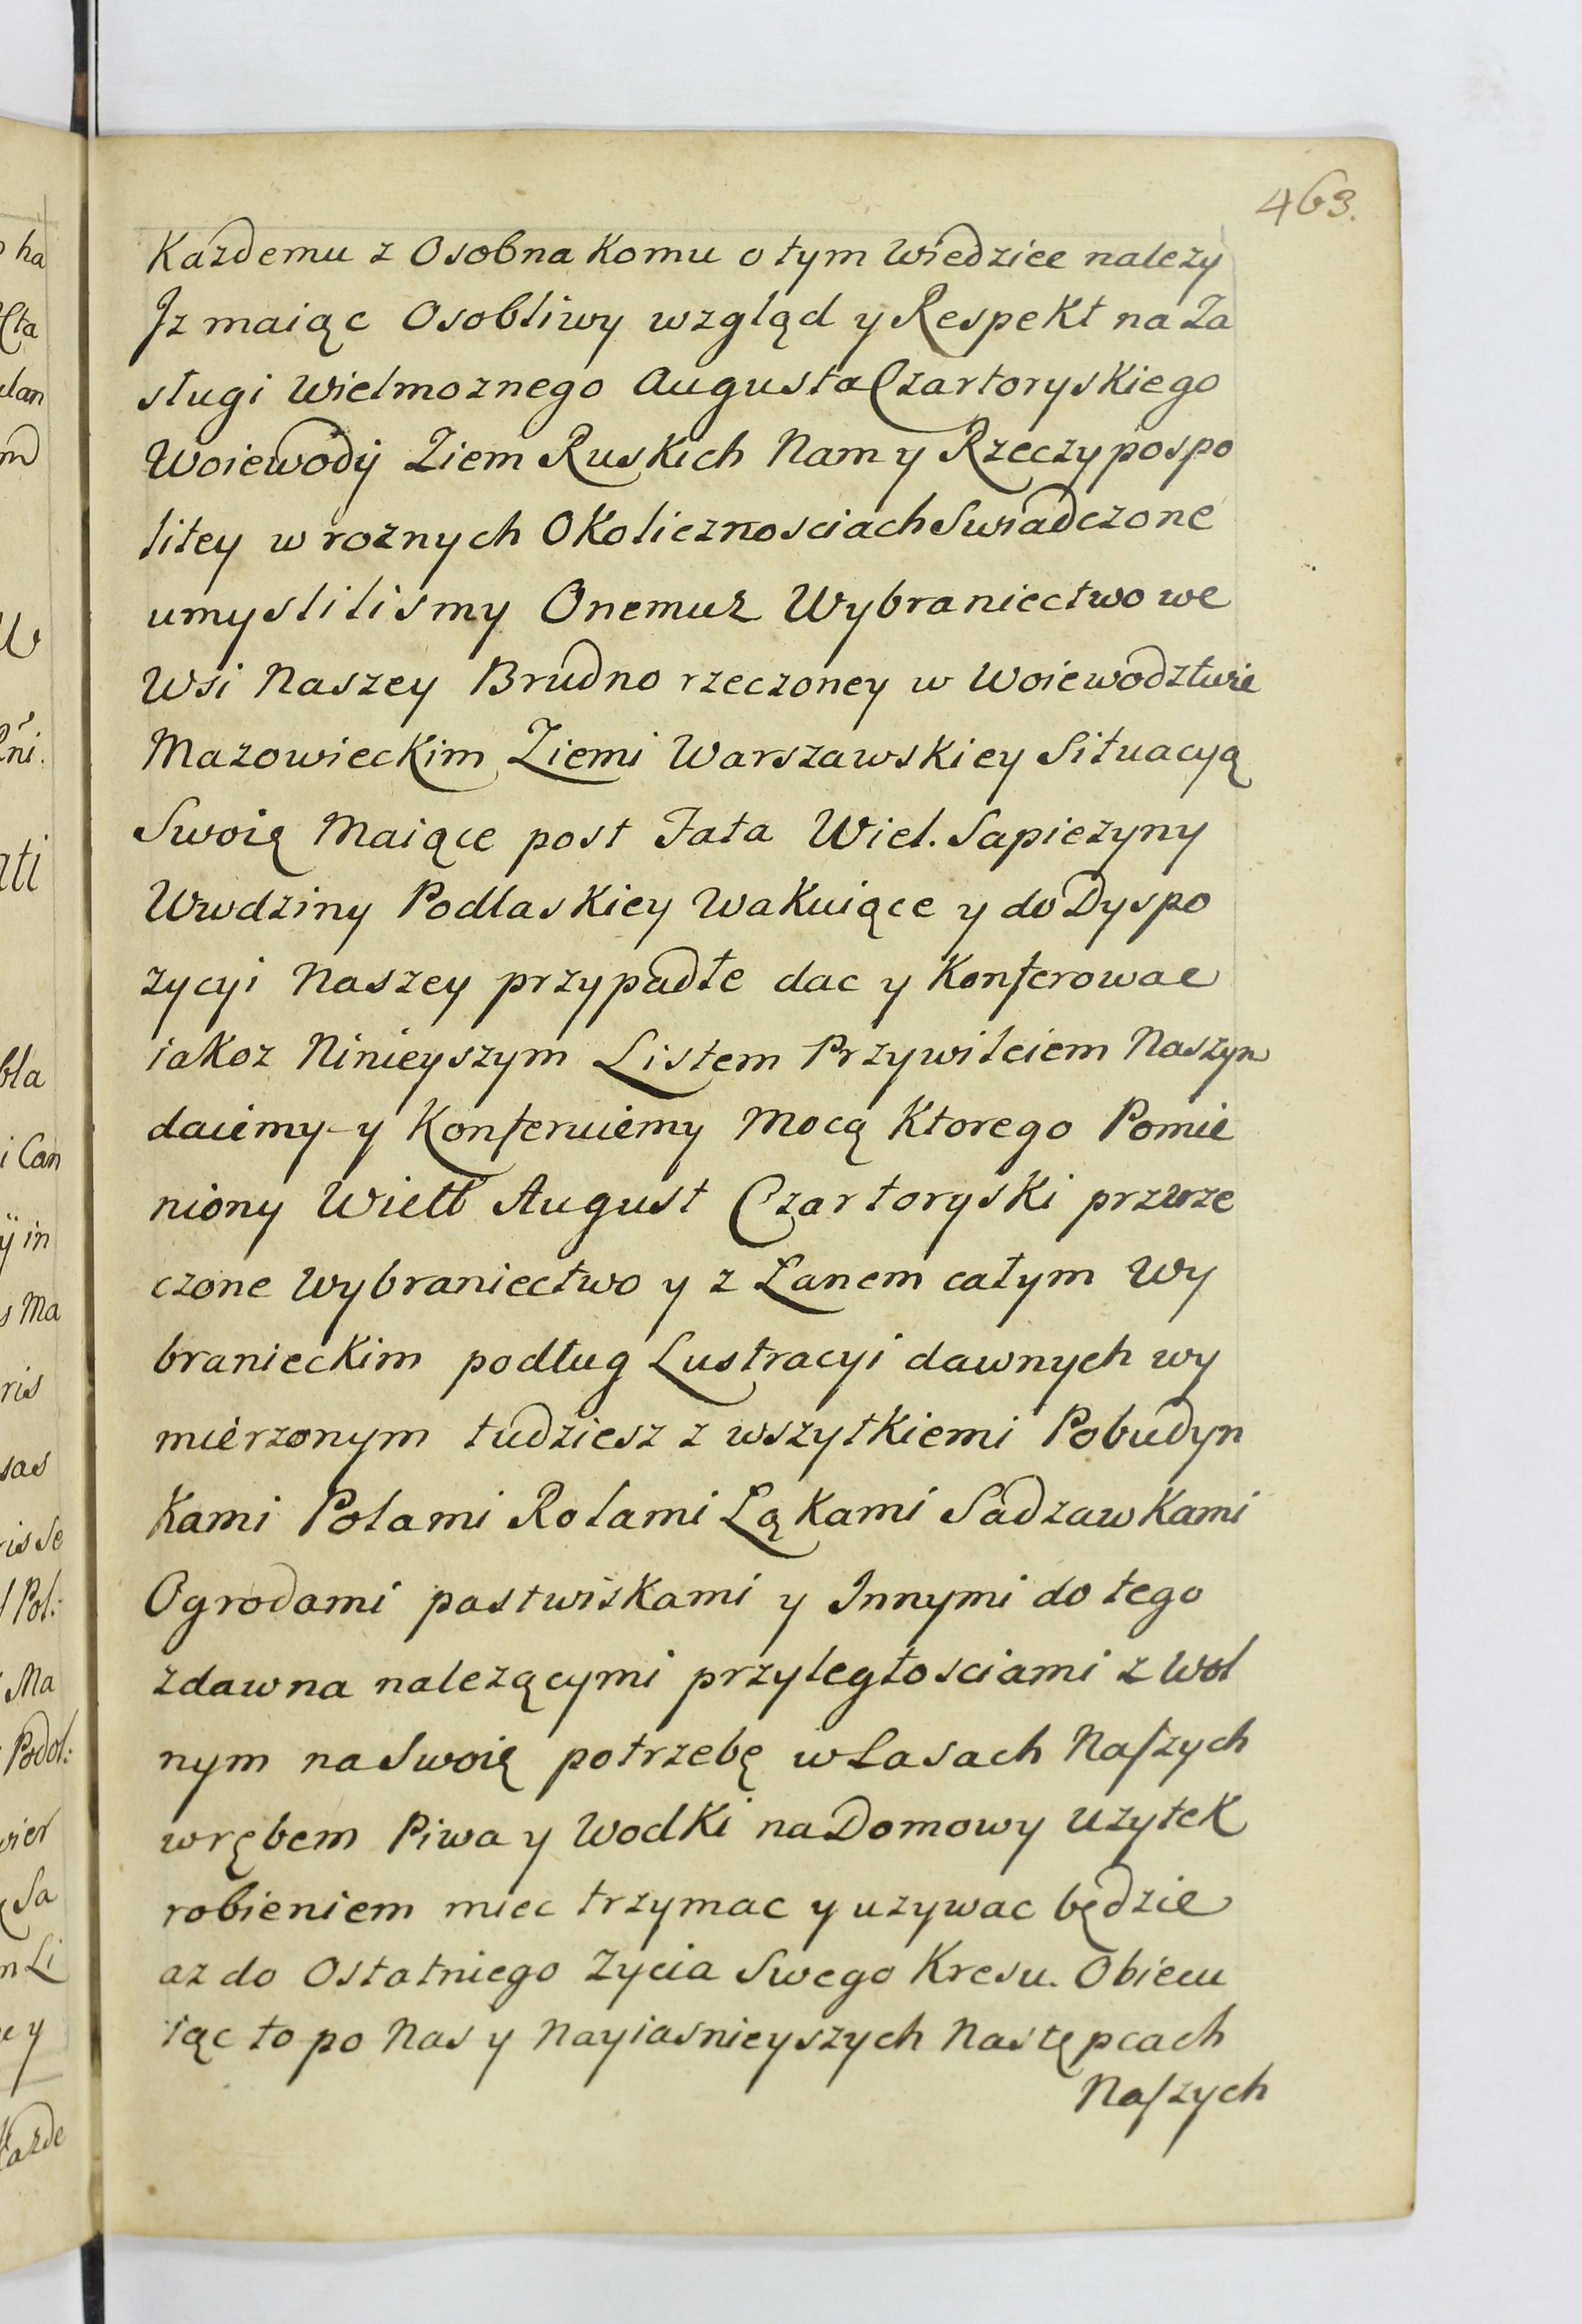 463.
Kazdemu z Osobna Komu o tym Wiedziec nalezy
Jz maiąc Osobliwy wzgląd y Respekt na Za
sługi Wielmoznego Augusta Czartoryskiego
Woiewody Ziem Ruskich Nam y Rzeczypospo
litey w roznych Okolicznosciach Swiadczone
umyslilismy Onemuz Wybraniectwo we
Wsi Naszey Brudno rzeczoney w Woiewodztwie
Mazowieckim Ziemi Warszawskiey Situacyą
Swoię Maiące post Fata Wiel. Sapiezyny
Wwdziny Podlaskiey Wakuiące y do Dyspo
zycyi Naszey przypadłe dac y Konferowac
iakoz Ninieyszym Listem Przywileiem Naszym
daiemy y Konferuiemy Mocą Ktorego Pomie
niony Wielł August Czartoryski przerze
czone Wybraniectwo y z Łanem całym Wy
branieckim podług Lustracyi dawnych wy
mierzonym tudziesz z wszytkiemi Pobudyn
Kami Polami Rolami Łąkami Sadzawkami
Ogrodami pastwiskami y Innymi do tego
zdawna nalezącymi przyległosciami z Wol
nym na Swoię potrzebę w Lasach Naszych
wrębem Piwa y Wodki na Domowy Uzytek
robieniem miec trzymac y uzywac będzie
az do Ostatniego Zycia Swego Kresu. Obiecu
iąc to po Nas y Nayiasnieyszych Następcach
Naszych